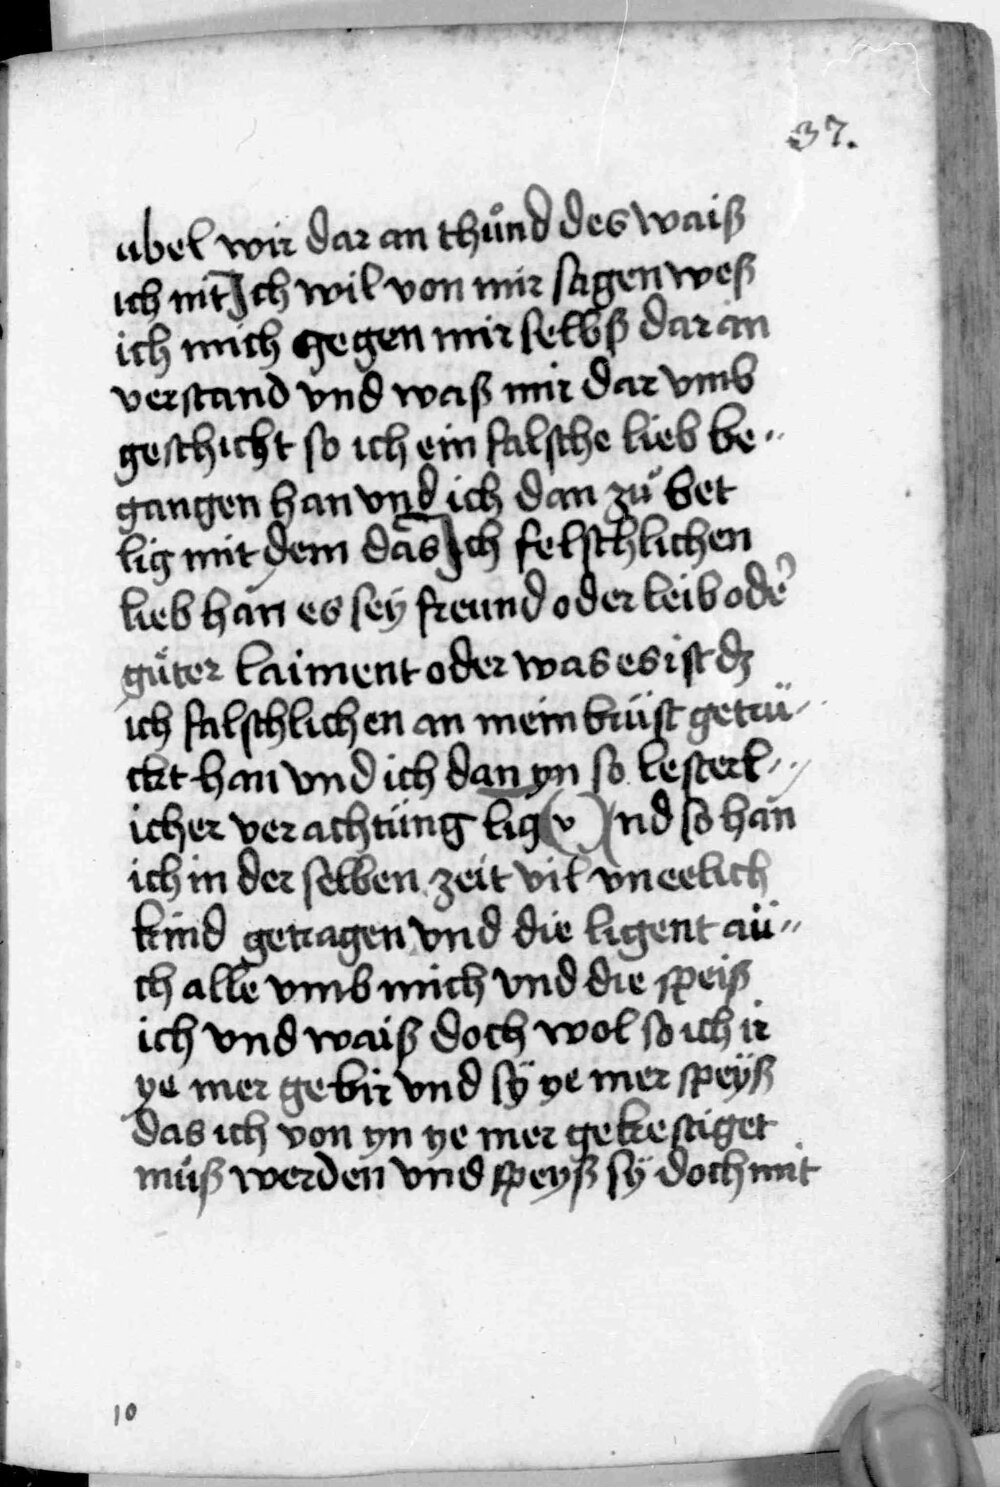 37.
ubel wir dar an thůnd des waiß
ich nit Ich wil von mir sagen weß
ich mich gegen mir selbß dar an
verstand vnd waß mir dar vmb
geschicht so ich ein falsche lieb be„
gangen han vnd ich dan zů bet
lig mit dem das Ich felschlichen
lieb han es sey freund oder leib oder
gůter laiment oder was es ist dz
ich falschlichen an mein brüst getrü„
ckt han vnd ich dan yn so lesterl„
icher verachtüng lig (v) nd so han
ich in der selben zeit vil vneelich
kind getragen vnd die ligent aü„
ch alle vmb mich vnd die speiß
ich vnd waiß doch wol so ich ir
ye mer gebir vnd sÿ ye mer speÿß
das ich von yn ye mer gekestiget
můß werden vnd speyß sÿ doch mit
10